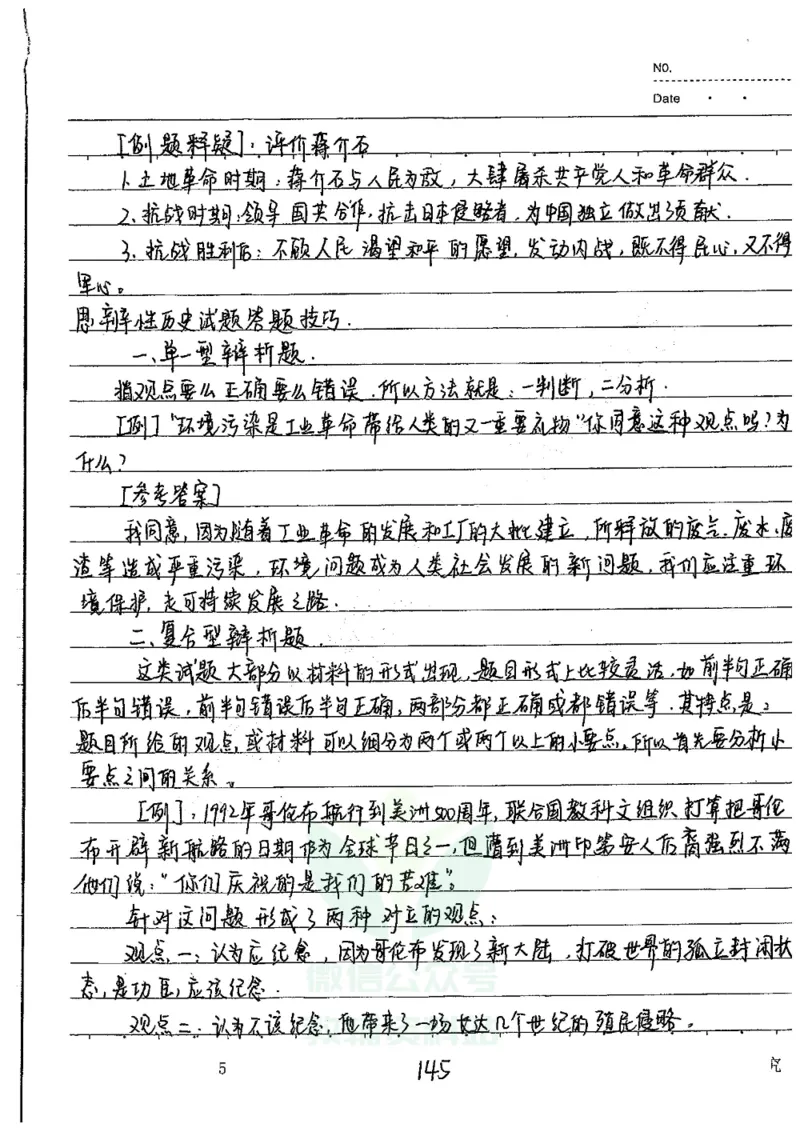 NO.
Date
[例题释疑]：评价蒋介石
1.土地革命时期：蒋介石与人民为敌，大肆屠杀共产党人和革命群众.
2.抗战时期：领导国共合作，抗击日本侵略者，为中国独立做出了贡献.
3.抗战胜利后：不顾人民渴望和平的愿望，发动内战，既不得民心，又不得
军心。
思辨性历史试题答题技巧.
一、单一型辩析题.
指观点要么正确要么错误.所以方法就是：一判断，二分析.
[例]"环境污染是工业革命带给人类的又一重要礼物"你同意这种观点吗？为
什么？
[参考答案]
我同意，因为随着工业革命的发展和工厂的大批建立，所释放的废气.废水.废
渣等造成严重污染，环境问题成为人类社会发展的新问题，我们应注重环
境保护，走可持续发展之路.
二、复合型辩析题.
这类试题大部分以材料的形式出现，题目形式上比较灵活，如前半句正确
后半句错误，前半句错误后半句正确，两部分都正确或都错误等.其特点是：
题目所给的观点，或材料可以细分为两个或两个以上的小要点，所以首先要分析小
要点之间的关系。
[例]：1992年哥伦布航行到美洲500周年，联合国教科文组织打算把哥伦
布开辟新航路的日期作为全球节日之一，但遭到美洲印第安人后裔强烈不满
他们说："你们庆祝的是我们的苦难"。
针对这问题形成了两种对立的观点：
观点一：认为应纪念，因为哥伦布发现了新大陆，打破世界的孤立封闭状
态，是功臣，应该纪念.
观点二：认为不该纪念，他带来了一场长达几个世纪的殖民侵略。
微信公众号
5
145